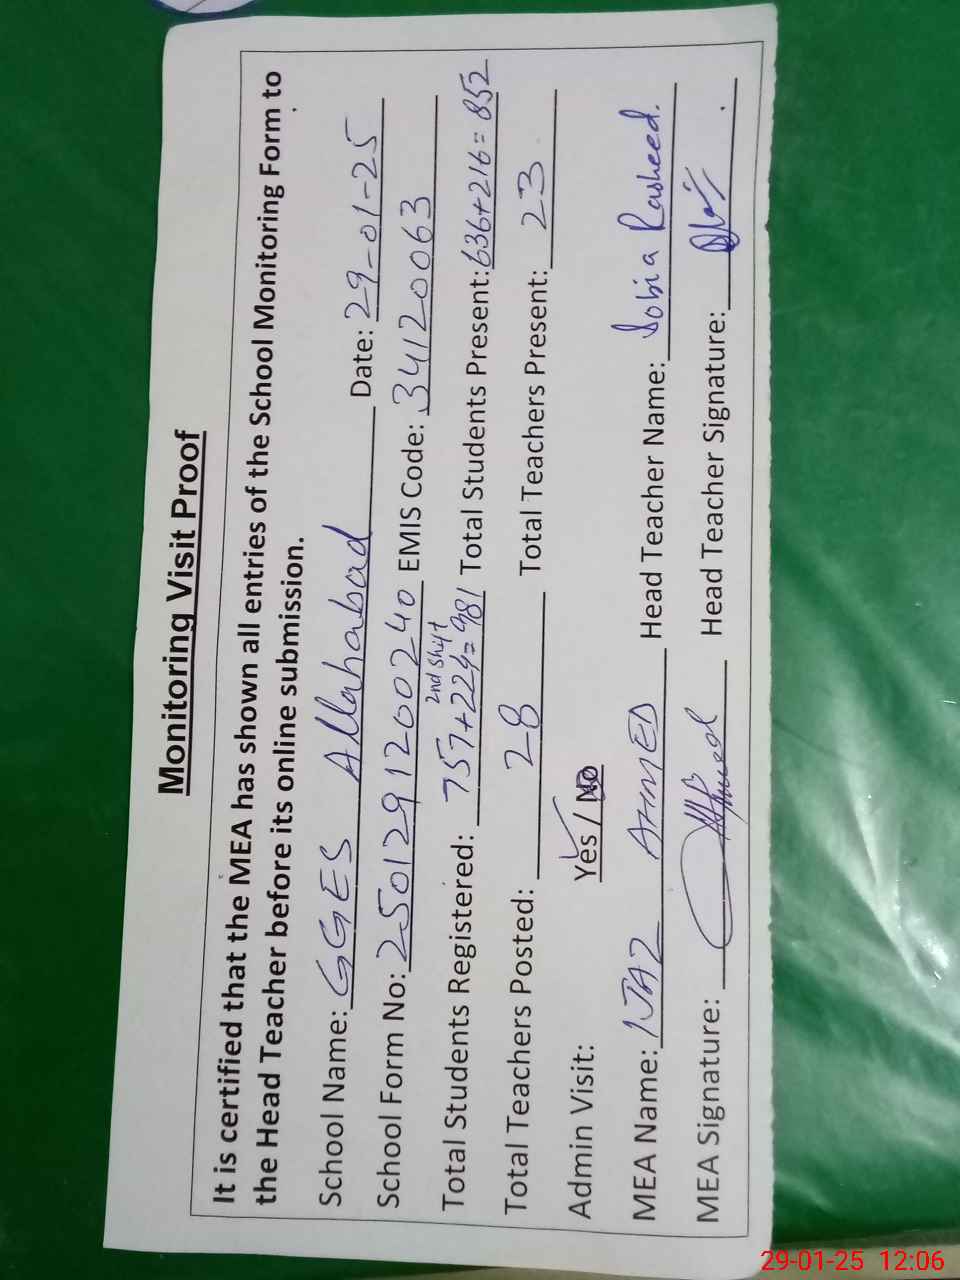 Monitoring Visit Proof
It is certified that the MEA has shown all entries of the School Monitoring Form to
the Head Teacher before its online submission.
School Name: GGES Allahabad Date: 29-01-25
School Form No: 2501291200240 EMIS Code: 34120063
2nd Shift
Total Students Registered: 757+224=981 Total Students Present: 636+216=852
Total Teachers Posted: 28 Total Teachers Present: 23
Admin Visit: Yes / No
MEA Name: IJAZ AHMED Head Teacher Name: Sobia Rasheed.
MEA Signature: Head Teacher Signature:
29-01-25 12:06